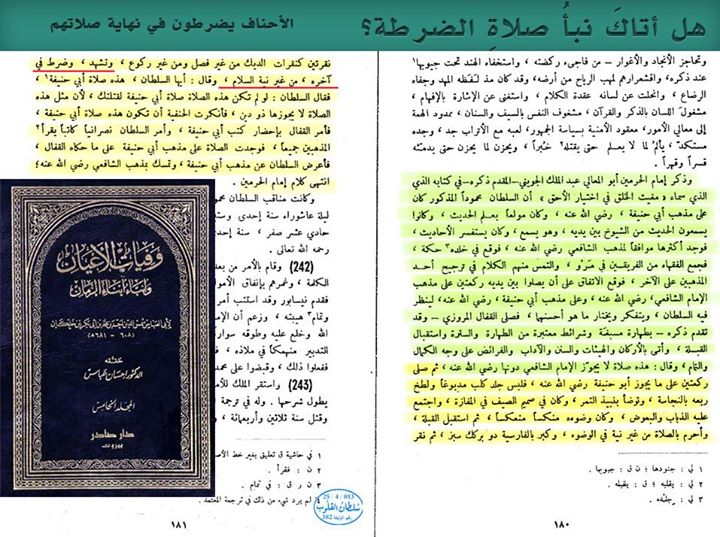 هل أتاكَ نبأُ صلاةِ الضرطة؟
الأحناف يضرطون في نهاية صلاتهم
وتحاجز الأنجاد والأغوار ، من فاجيء ركضته ، واستخفاء الهند تحت جيوبها
عند ذكره ، واقشعرارهم لمهب الرياح من أرضه ، وقد كان مذ لفظه المهد وجفاه
الرضاع ، وانحلت عن لسانه عقدة الكلام ، واستغنى عن الإشارة بالإفهام ،
مشغول اللسان بالذكر والقرآن ، مشغوف النفس بالسيف والسنان ، ممدود الهمة
إلى معالي الأمور، معقود الأمنية بسياسة الجمهور، لعبه مع الأتراب جد ، وجده
مستكد ، يألم لما لا يعلم حتى يقتله خبراً ، ويحزن لما يحزن حتى يدمثه
قسراً وقهراً .
وذكر إمام الحرمين أبو المعالي عبد الملك الجويني - المقدم ذكره - في كتابه الذي
سماه « مغيث الخلق في اختيار الأحق » أن السلطان محموداً المذكور كان
على مذهب أبي حنيفة ، رضي الله عنه ، وكان مولعاً بعلم الحديث ، وكانوا
يسمعون الحديث من الشيوخ بين يديه ، وهو يسمع ، وكان يستفسر الأحاديث ،
فوجد أكثرها موافقاً لمذهب الشافعي رضي الله عنه ، فوقع في خلده حكة ،
فجمع الفقهاء من الفريقين في مَرْو ، والتمس منهم الكلام في ترجيح أحد
المذهبين على الآخر ، فوقع الاتفاق على أن يصلوا بين يديه ركعتين على مذهب
الإمام الشافعي، رضي الله عنه ، وعلى مذهب أبي حنيفة ، رضي الله عنه، لينظر
فيه السلطان ، ويتفكر ويختار ما هو أحسنها ، فصلى القفال المروزي - وقد
تقدم ذكره - بطهارة مسبغة وشرائط معتبرة من الطهارة والسترة واستقبال
القبلة ، وأتى بالأركان والهيئات والسنن والآداب والفرائض على وجه الكمال
والتمام ، وقال : هذه صلاة لا يجوّز الإمام الشافعي دونها رضي الله عنه ، ثم صلى
ركعتين على ما يجوز أبو حنيفة رضي الله عنه ، فلبس جلد كلب مدبوغاً ولطخ
ربعه بالنجاسة ، وتوضأ بنبيذ التمر ، وكان في صميم الصيف في المفازة ، واجتمع
عليه الذباب والبعوض ، وكان وضوءه منكساً منعكساً ، ثم استقبل القبلة ،
وأحرم بالصلاة من غير نية في الوضوء ، وكبر بالفارسية دو بركك سبز ، ثم نقر
١ لي : جنودها ؛ ن ق : جيوبها .
٢ لي : بقلبه ؛ ق : يقبله .
٣ لي :
١٨٠
نقرتين كنقرات الديك من غير فصل ومن غير ركوع ، وتشهد ، وضرط في
آخره ، من غير نية السلام ، وقال : أيها السلطان ، هذه صلاة أبي حنيفة ،
فقال السلطان : لو لم تكن هذه الصلاة صلاة أبي حنيفة لقتلتك ، لأن مثل هذه
الصلاة لا يجوزها ذو دين ، فأنكرت الحنفية أن تكون هذه صلاة أبي حنيفة ،
فأمر القفال بإحضار كتب أبي حنيفة ، وأمر السلطان نصرانياً كاتباً يقرأ
المذهبين جميعاً ، فوجدت الصلاة على مذهب أبي حنيفة على ما حكاه القفال ،
فأعرض السلطان عن مذهب أبي حنيفة ، وتمسك بمذهب الشافعي رضي الله عنه؛
انتهى كلام إمام الحرمين .
وكانت مناقب السلطان محمود
ليلة عاشوراء سنة إحدى وستين
حادي عشر صفر ، سنة إحدى
رحمه الله تعالى .
(242) وقام بالأمر من بعد
الكلمة ، وغمرهم بإنفاق الأموال
فقدم نيسابور وقد استتب أمر
وتمام هيبته ، وزعم أن الإمام
الله خلع عليه وطوقه سوار
التدبير منهمكاً في ملاذه ،
ففعلوا ذلك ، وقبضوا على محمد
(243) واستقر الملك للأمير
يطول شرحها . وله في ترجمة
وقتل سنة ثلاثين وأربعمائة ،
١ في حاشية ق تعليق بغير خط الأصل
٢ ن : فقرأ .
٣ ن ر ق : في تمام .
٤ لم يرد شيء من ذلك في ترجمة المعتمد .
١٨١
وفيات الأعيان
وأنباء أبناء الزمان
لأبي العباس شمس الدين أحمد بن محمد بن أبي بكر بن خلكان
(٦٠٨ - ٦٨١هـ)
حققه
الدكتور إحسان عباس
المجلد الخامس
دار صادر
بيروت
25 / 4 / 013
سلطان القلوب
رقم الوثيقة 382